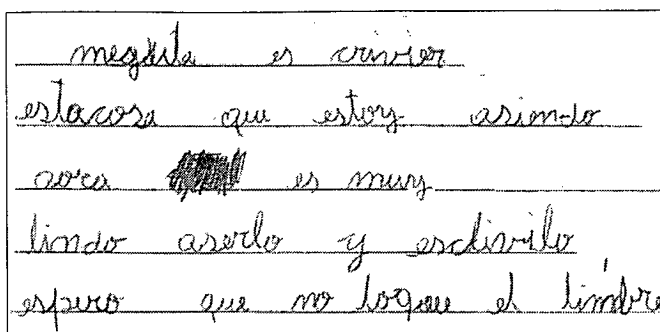 megusta es crivier
estacosa que estoy asiendo
aora es muy
lindo aserlo y esclivilo
espero que no toque el timbre